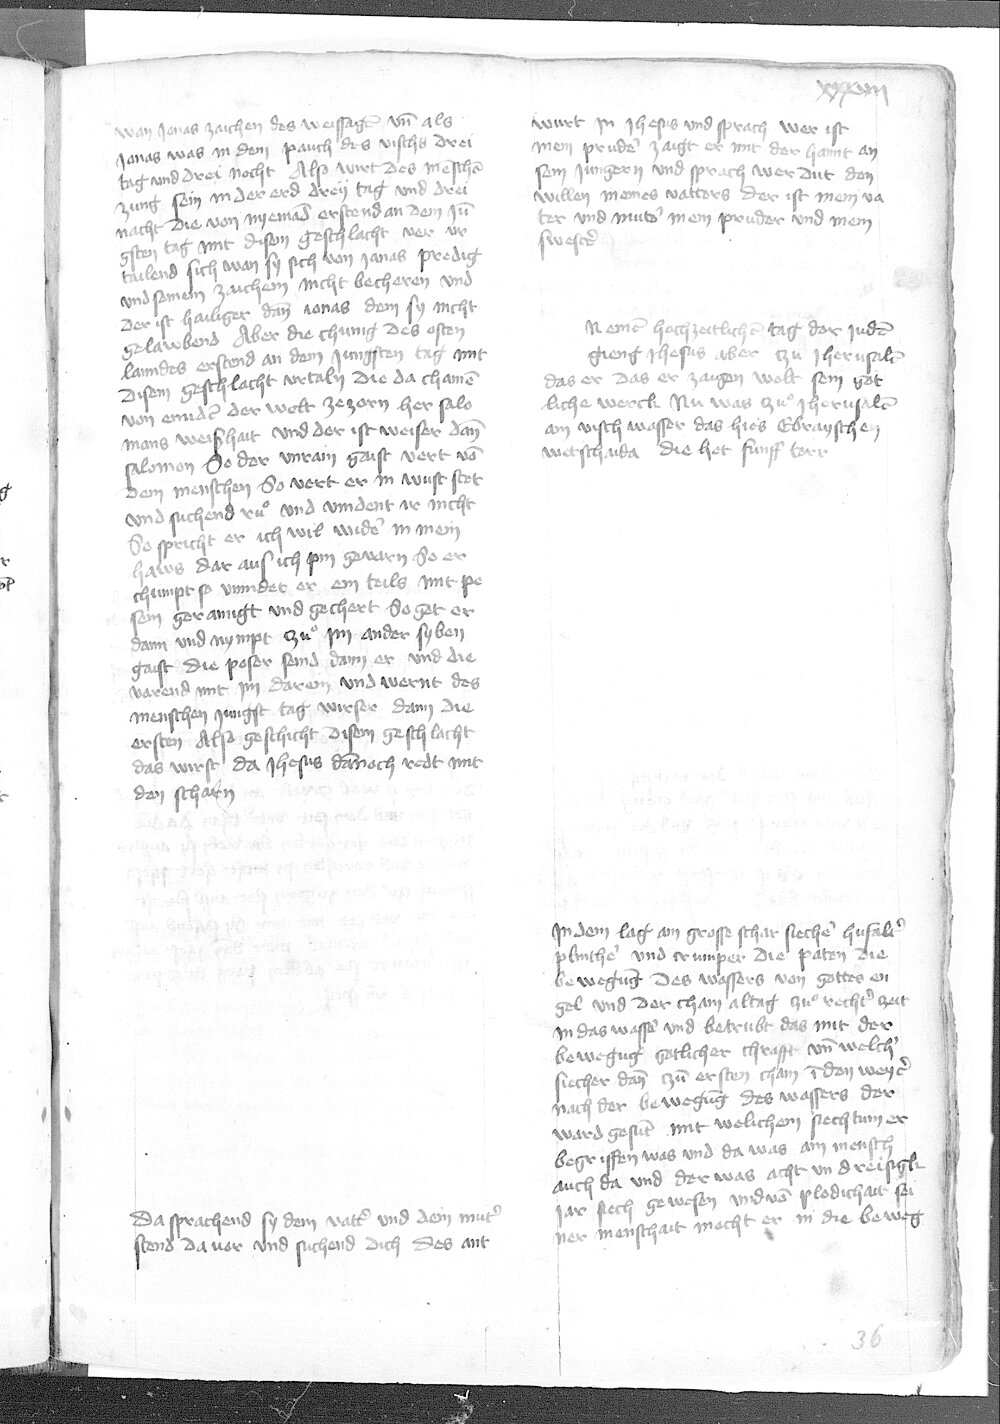 xxxvii
wan Jonas zaichen des weissagē vn̄ als
Jonas was in dem pauch des vischs drei
tag vnd drei nocht Also wirt des mēschē
zung sein in der erd dreÿ tag vnd drei
nacht die von nyemād erstend an dem Ju̅
gsten tag mit disem geschlacht ver vr
tailend sich wan sy sich von Jonas predig
vnd seinem zaichem nicht becheren vnd
der ist hailiger dan̄ ionas dem sy nicht
gelawbend Aber die chunig des osten
lanndes erstend an dem Jungsten tag mit
disem geschlacht vrtaly die da chamē
von emidē der welt ze zorn her salo
mons weishait vnd der ist weiser dan̄
salomon So der vnrain gaist vert vō
dem menschen So vert er in wust stet
vnd suchend ruͦ vnd vindent ir nicht
So spricht er ich wil widē in mein
haws dar aus ich pin gevarn So er
chumpt so vinndet er em teils mit pe
sem geramigt vnd gechert So get er
dann vnd nympt zuͦ im ander syben
gaist die poser seind dann er vnd die
varend mit im darein vnd wernt des
menschen Jungst tag wirser dann die
ersten Also geschicht disem geschlacht
das wirst da Jhesus dan̄noch redt mit
den scharn
Da sprachend sy dem vattͤ vnd dem mutͤ
stend da vor vnd suchend dich des ant
wurt In Jhesus vnd sprach wer ist
mein prudē zaigt er mit der hannt an
sein Jungern vnd sprach wer dut den
willen meines vatters der ist mein va
ter vnd mutē mein pruder vnd mein
swestē
N einē hochzeitlichē tag der Judē
gieng Jhesus aber zuͦ Jherusalē
das er das er zaigen wolt sein got
liche werch Nu was zuͦ Jherusalē
am visch wasser das hies Ebrayschen
wetschaida die het funff torr
In dem lag am grosse schar siechē hufaltͤ
plinthē vnd crumper die paten die
bewegūg des wassers von gottes en
gel vnd der cham altag zuͦ rechtͤ zeit
in das wassē vnd betrubt das mit der
bewegūg gotlicher chrafft vn̄ welch
siecher dan̄ zū ersten cham ī den weyē
nach der bewegūg des wassers der
ward gesūt mit welichem siechtum er
begriffen was vnd da was am mensch
auch da vnd der was acht vnd dreisigk
Jar siech gewesen vnd vō plodichait sei
ner menschait mocht er in die beweg
36